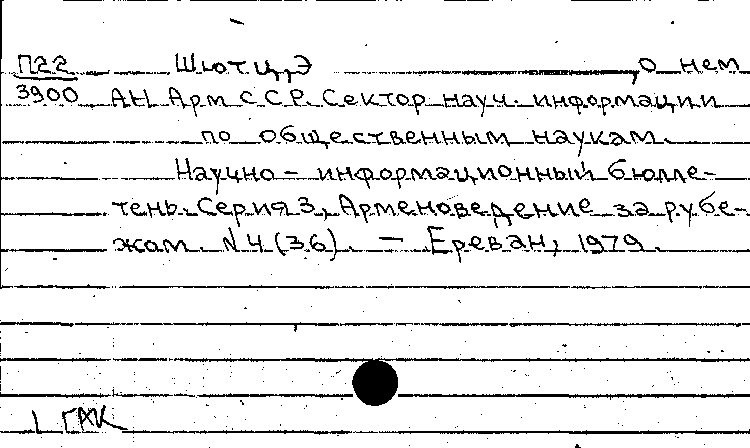 П22 Шютц, Э , о нем
3900 АН Арм ССР. Сектор науч. информации
по общественным наукам.
Научно - информационный бюлле-
тень. Серия 3, Арменоведение за рубе-
жом. N 4 (36). — Ереван, 1979.
1 ГАК